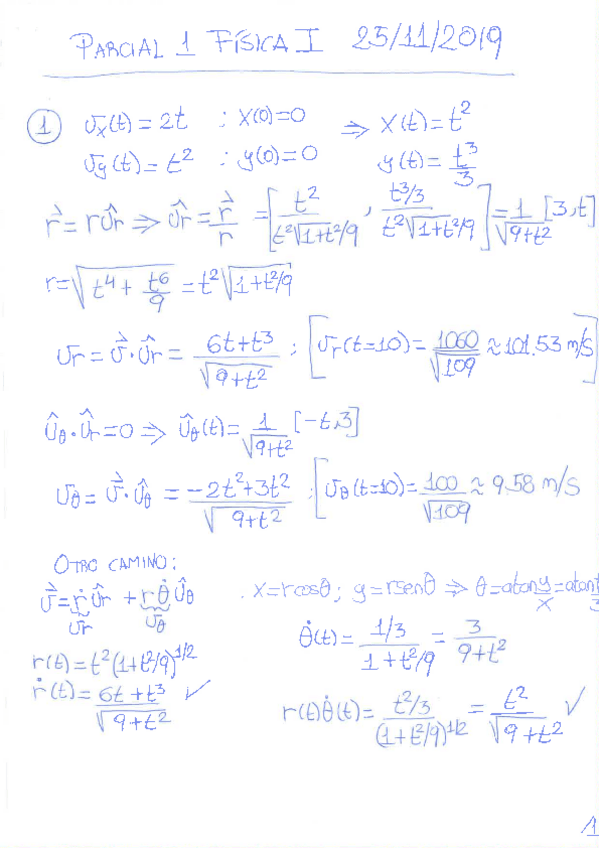 PARCIAL 1 FÍSICA I 25/11/2019
① v_x(t) = 2t ; x(0)=0 ⇒ x(t) = t²
v_y(t) = t² ; y(0)=0 y(t) = t³/3
r⃗ = r û_r ⇒ û_r = r⃗/r = [t²/(t²√(1+t²/9)), (t³/3)/(t²√(1+t²/9))] = 1/√(9+t²) [3,t]
r = √(t⁴ + t⁶/9) = t²√(1+t²/9)
v_r = v⃗·û_r = (6t+t³)/√(9+t²) ; [v_r(t=10) = 1060/√109 ≈ 101.53 m/s]
û_θ·û_r = 0 ⇒ û_θ(t) = 1/√(9+t²) [-t,3]
v_θ = v⃗·û_θ = (-2t²+3t²)/√(9+t²) ; [v_θ(t=10) = 100/√109 ≈ 9.58 m/s
OTRO CAMINO:
v⃗ = ṙ û_r + r θ̇ û_θ . x = r cosθ ; y = r senθ ⇒ θ = atan y/x = atan t/3
v_r v_θ
θ̇(t) = (1/3)/(1+t²/9) = 3/(9+t²)
r(t) = t²(1+t²/9)^1/2
ṙ(t) = (6t+t³)/√(9+t²) ✓
r(t)θ̇(t) = (t²/3)/(1+t²/9)^1/2 = t²/√(9+t²) ✓
1